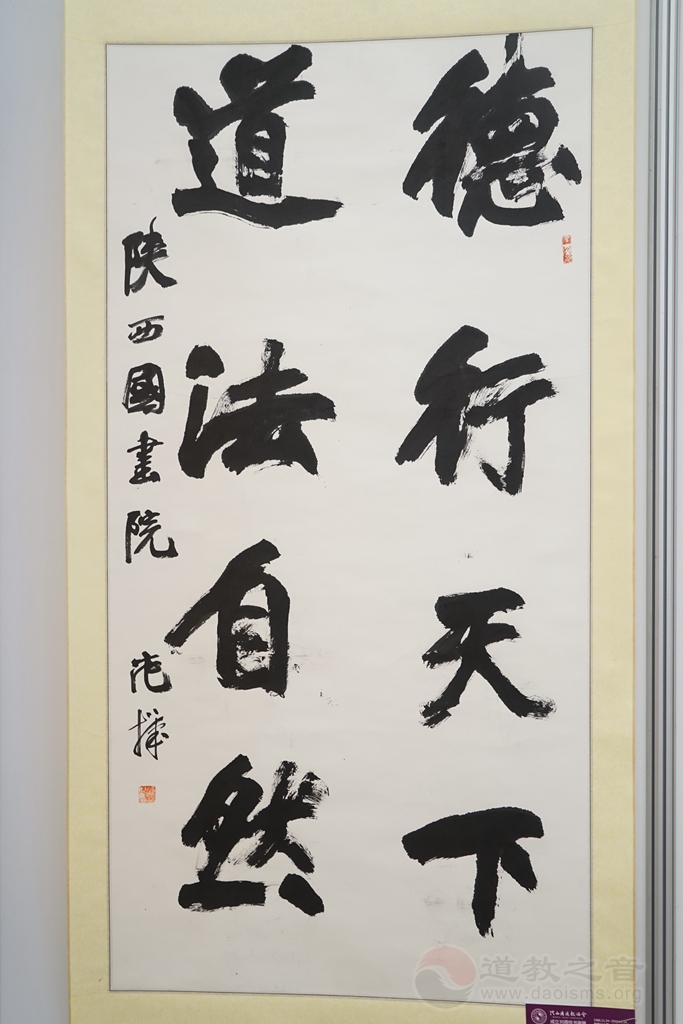 德行天下
道法自然
陕西國畫院
道教之音
www.daoisms.org